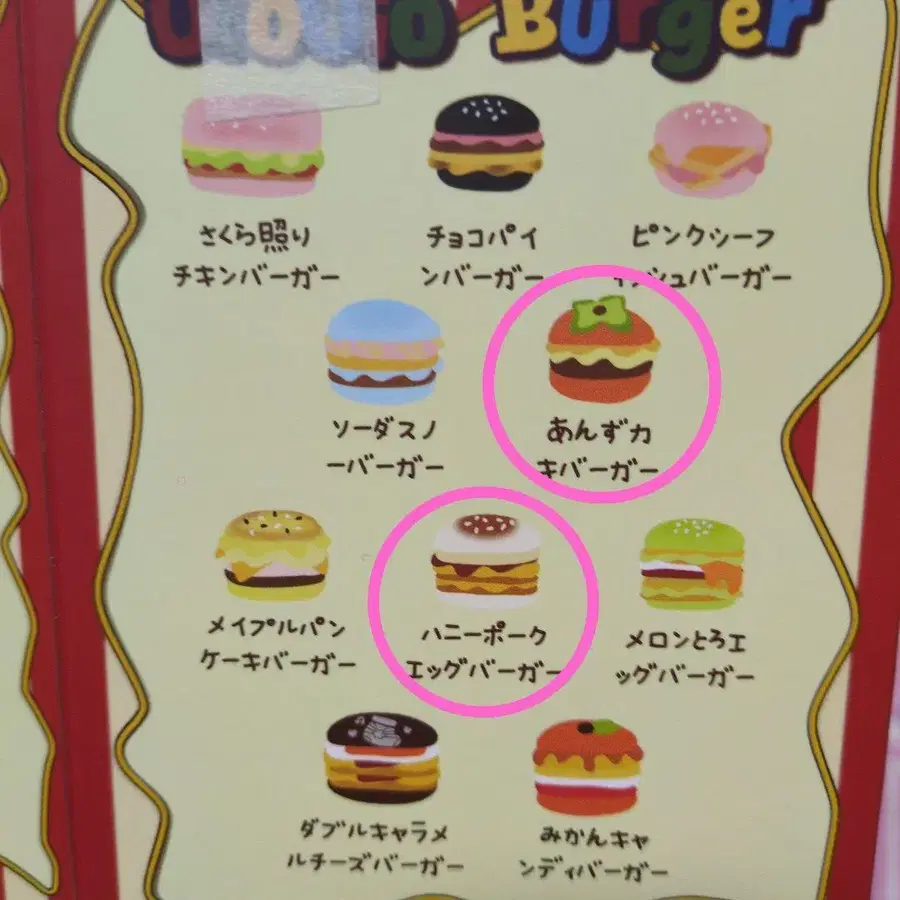 Burger
さくら照り
チキンバーガー
チョコパイ
ンバーガー
ピンクシーフ
ィッシュバーガー
ソーダスノ
ーバーガー
あんずカ
キバーガー
メイプルパン
ケーキバーガー
ハニーポーク
エッグバーガー
メロンとろエ
ッグバーガー
ダブルキャラメ
ルチーズバーガー
みかんキャ
ンディバーガー